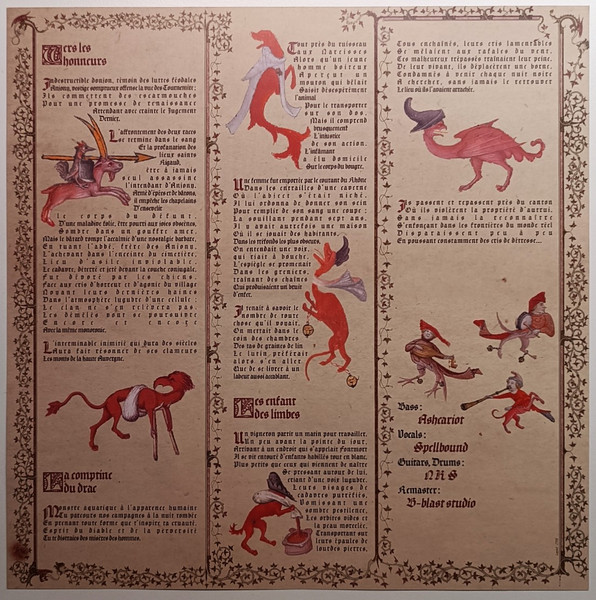 Vers les
honneurs
Indestructible donjon, témoin des luttes féodales
Anjony, vestige somptueux offense la rue des Tournemire;
Ils commercent des escarmouches
Pour une promesse de renaissance
Attendant avec crainte le Jugement
Dernier.
L'affrontement des deux races
Se termine dans le sang
Et la profanation des
lieux saints
Rigaud,
être à jamais
seul assassine
l'intendant d'Anjony,
Armé d'épées et de bâtons,
il empêche les chapelains
D'ensevelir
Le corps du défunt,
D'une maladive folie, être pourri aux yeux obscènes,
Sombre dans un gouffre ancré
Mais le bâtard rompt l'accalmie d'une nostalgie barbare,
En tuant l'abbé, frère des Anjony
L'achevant dans l'enceinte du cimetière,
Lieu d'asile inviolable.
Le cadavre, déterré et jeté devant la couche conjugale,
Fut dévoré par les chiens,
Face aux cris d'horreur et d'agonie du village
Vouant leurs dernières haines
Dans l'atmosphère lugubre d'une cellule;
Le clan ne s'en relèvera pas
Les démêlés vont se poursuivre
Encore et encore
Avec la même monotonie.
L'interminable inimitié qui dura des siècles
Aura fait résonner de ses clameurs
Les monts de la haute Auvergne.
La comptine
du drac
Monstre aquatique à l'apparence humaine
Tu parcours nos campagnes à la nuit tombée
En prenant toute forme que t'inspire ta cruauté.
Esprit du diable et de la perversité
Tu te distrais des misères des hommes.
Tout près du ruisseau
Aux Narcisses
Alors qu'un jeune
homme boiteux
Aperçut un
mouton qui bêlait
Saisit désespérément
l'animal
Pour le transporter
sur son dos.
Mais il comprend
brusquement
L'injustice
de son action.
L'infâmant
a élu domicile
Sur le corps du bougre.
Une femme fut emportée par le courant du Rhône
Dans les entrailles d'une caverne
Où l'abject s'était niché.
Il lui ordonna de donner son sein
Pour remplir de son sang une coupe;
La souillant pendant sept ans.
Il y avait autrefois une maison
Où il se jouait des habitants.
Dans les tréfonds les plus obscurs,
On entendait une voix,
qui riait à bouche.
L'espiègle se promenait
Dans les greniers,
traînant des chaînes
Qui produisaient un bruit
d'enfer.
Prenait à savoir le
nombre de route
chose qu'il voyait,
On mettait dans le
coin des chambres
Des tas de graines de lin
Et le lutin, préférait
alors s'en aller
Que de se livrer à un
labeur aussi accablant.
Les enfant
des limbes
Un vigneron partit un matin pour travailler,
Un peu avant la pointe du jour,
Arrivant à un endroit qui s'appelait Fontmort
Il se vit entouré d'enfants habillés tout en blanc,
Plus petits que ceux qui viennent de naître
Se pressant autour de lui,
criant d'une voix lugubre.
Leurs visages de
cadavres putréfiés,
Vomissaient une
sombre pestilence,
Les orbites vides et
la peau morcelée.
Transportant sur
leurs épaules de
lourdes pierres,
Tous enchaînés, leurs cris lamentables
Se mêlaient aux rafales du vent,
Ces malheureux trépassés traînaient leur peine,
De leur vivant, ils déplacèrent une borne,
Condamnés à venir chaque nuit noire
A chercher, sans jamais le retrouver
Le lieu où ils l'avaient arrachée.
Ils passent et repassent près du canton
Où ils violèrent la propriété d'autrui,
Sans jamais la reconnaître
S'enfonçant dans les frontières du monde réel
Disparaissent peu à peu
En poussant constamment des cris de détresse...
Bass:
Ashcariot
Vocals:
Spellbound
Guitars, Drums:
NKS
Remaster:
B-blast studio